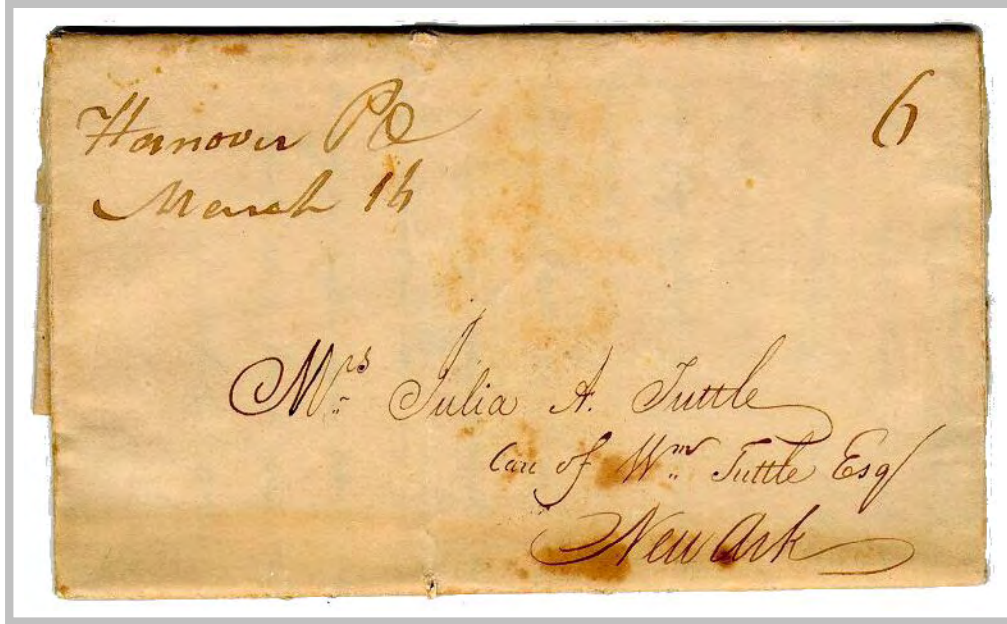 Hanover PO
March 16
6
Mrs Julia A. Tuttle
Care of Wm Tuttle Esq
New Ark